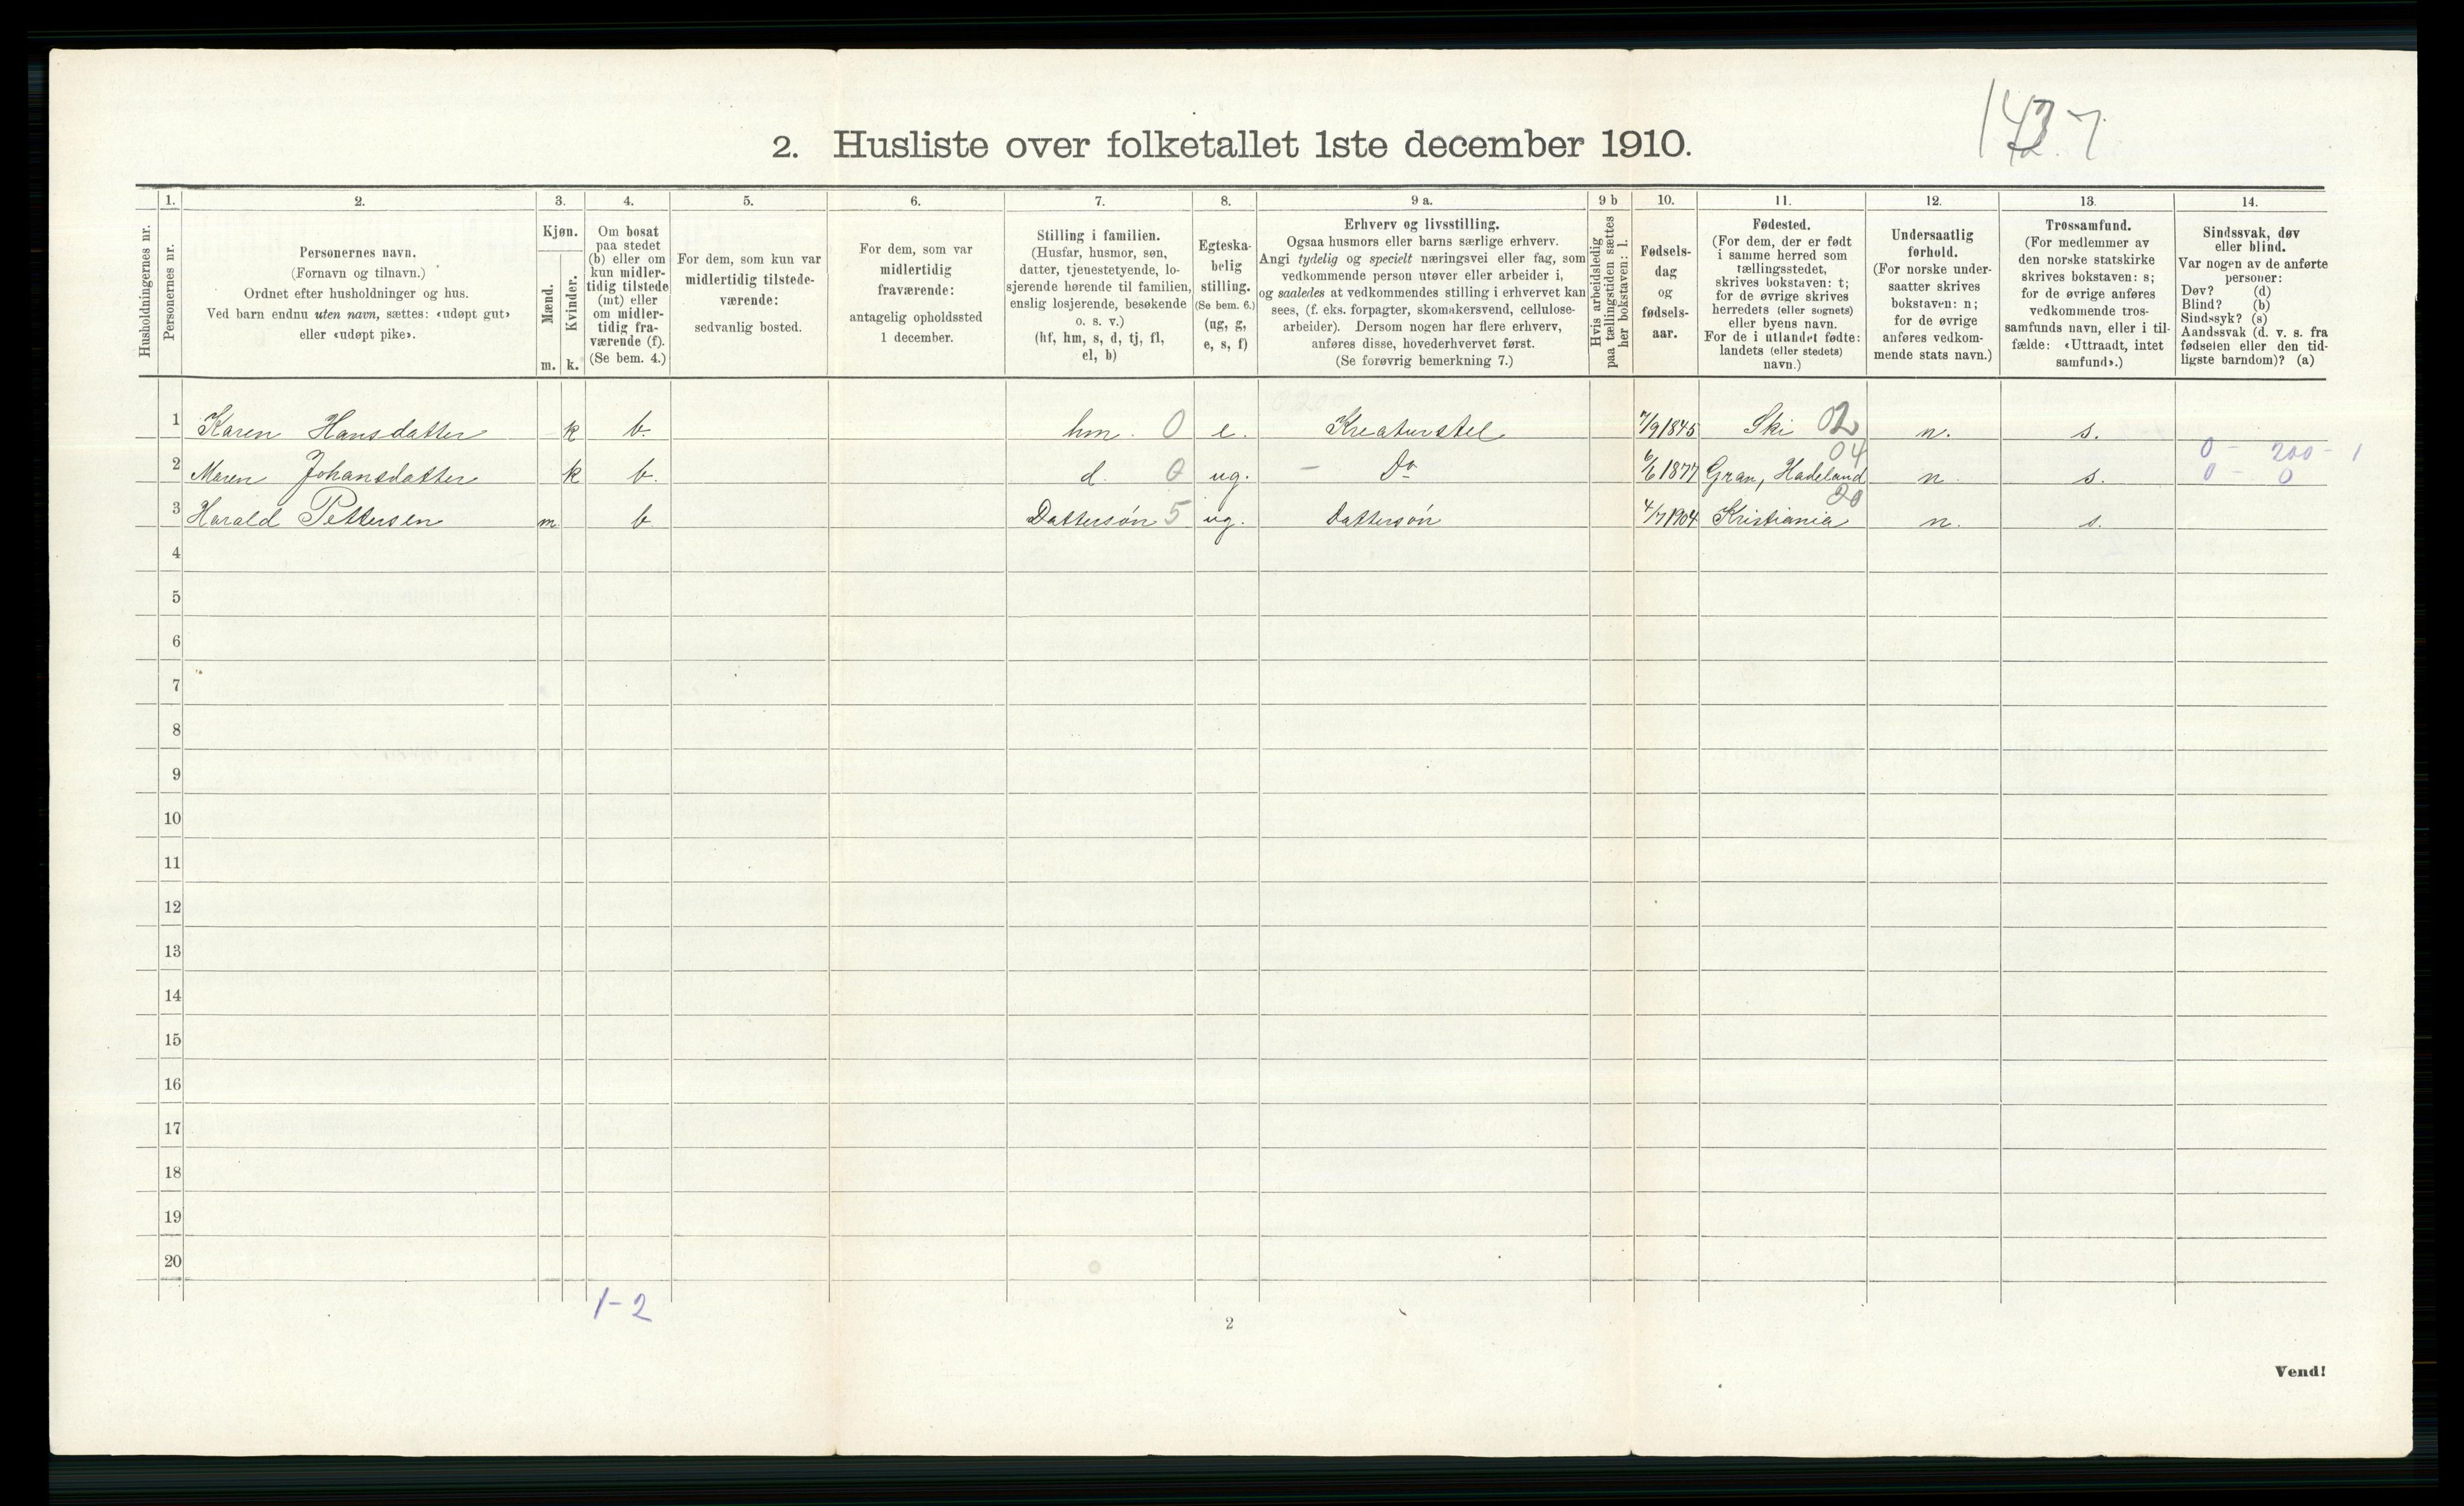 143.7
2. Husliste over folketallet 1ste december 1910.
Husholdningernes nr.
1. Personernes nr.
2. Personernes navn. (Fornavn og tilnavn.) Ordnet efter husholdninger og hus. Ved barn endnu uten navn, sættes: «udøpt gut» eller «udøpt pike».
3. Kjøn. Mænd. m. Kvinder. k.
4. Om bosat paa stedet (b) eller om kun midler-tidig tilstede (mt) eller om midler-tidig fra-værende (f). (Se bem. 4.)
5. For dem, som kun var midlertidig tilstede-værende: sedvanlig bosted.
6. For dem, som var midlertidig fraværende: antagelig opholdssted 1 december.
7. Stilling i familien. (Husfar, husmor, søn, datter, tjenestetyende, lo-sjerende hørende til familien, enslig losjerende, besøkende o. s. v.) (hf, hm, s, d, tj, fl, el, b)
8. Egteska-belig stilling. (Se bem. 6.) (ug, g, e, s, f)
9 a. Erhverv og livsstilling. Ogsaa husmors eller barns særlige erhverv. Angi tydelig og specielt næringsvei eller fag, som vedkommende person utøver eller arbeider i, og saaledes at vedkommendes stilling i erhvervet kan sees, (f. eks. forpagter, skomakersvend, cellulose-arbeider). Dersom nogen har flere erhverv, anføres disse, hovederhvervet først. (Se forøvrig bemerkning 7.)
9 b Hvis arbeidsledig paa tællingstiden sættes her bokstaven: l.
10. Fødsels-dag og fødsels-aar.
11. Fødested. (For dem, der er født i samme herred som tællingsstedet, skrives bokstaven: t; for de øvrige skrives herredets (eller sognets) eller byens navn. For de i utlandet fødte: landets (eller stedets) navn.)
12. Undersaatlig forhold. (For norske under-saatter skrives bokstaven: n; for de øvrige anføres vedkom-mende stats navn.)
13. Trossamfund. (For medlemmer av den norske statskirke skrives bokstaven: s; for de øvrige anføres vedkommende tros-samfunds navn, eller i til-fælde: «Uttraadt, intet samfund».)
14. Sindssvak, døv eller blind. Var nogen av de anførte personer: Døv? (d) Blind? (b) Sindssyk? (s) Aandssvak (d. v. s. fra fødselen eller den tid-ligste barndom)? (a)
1 Karen Hansdatter k b. hm. 0 e. Kreaturstel 7/9 1845 Ski 02 n. s.
2 Maren Johansdatter k b. d. 0 ug. - Do 6/6 1877 Gran, Hadeland 04 n. s. 0 - 200 - 1
0 - 0
3 Harald Pettersen m b Dattersön 5 ug. Dattersön 4/7 1904 Kristiania 20 n. s.
4
5
6
7
8
9
10
11
12
13
14
15
16
17
18
19
20
1-2
2
Vend!